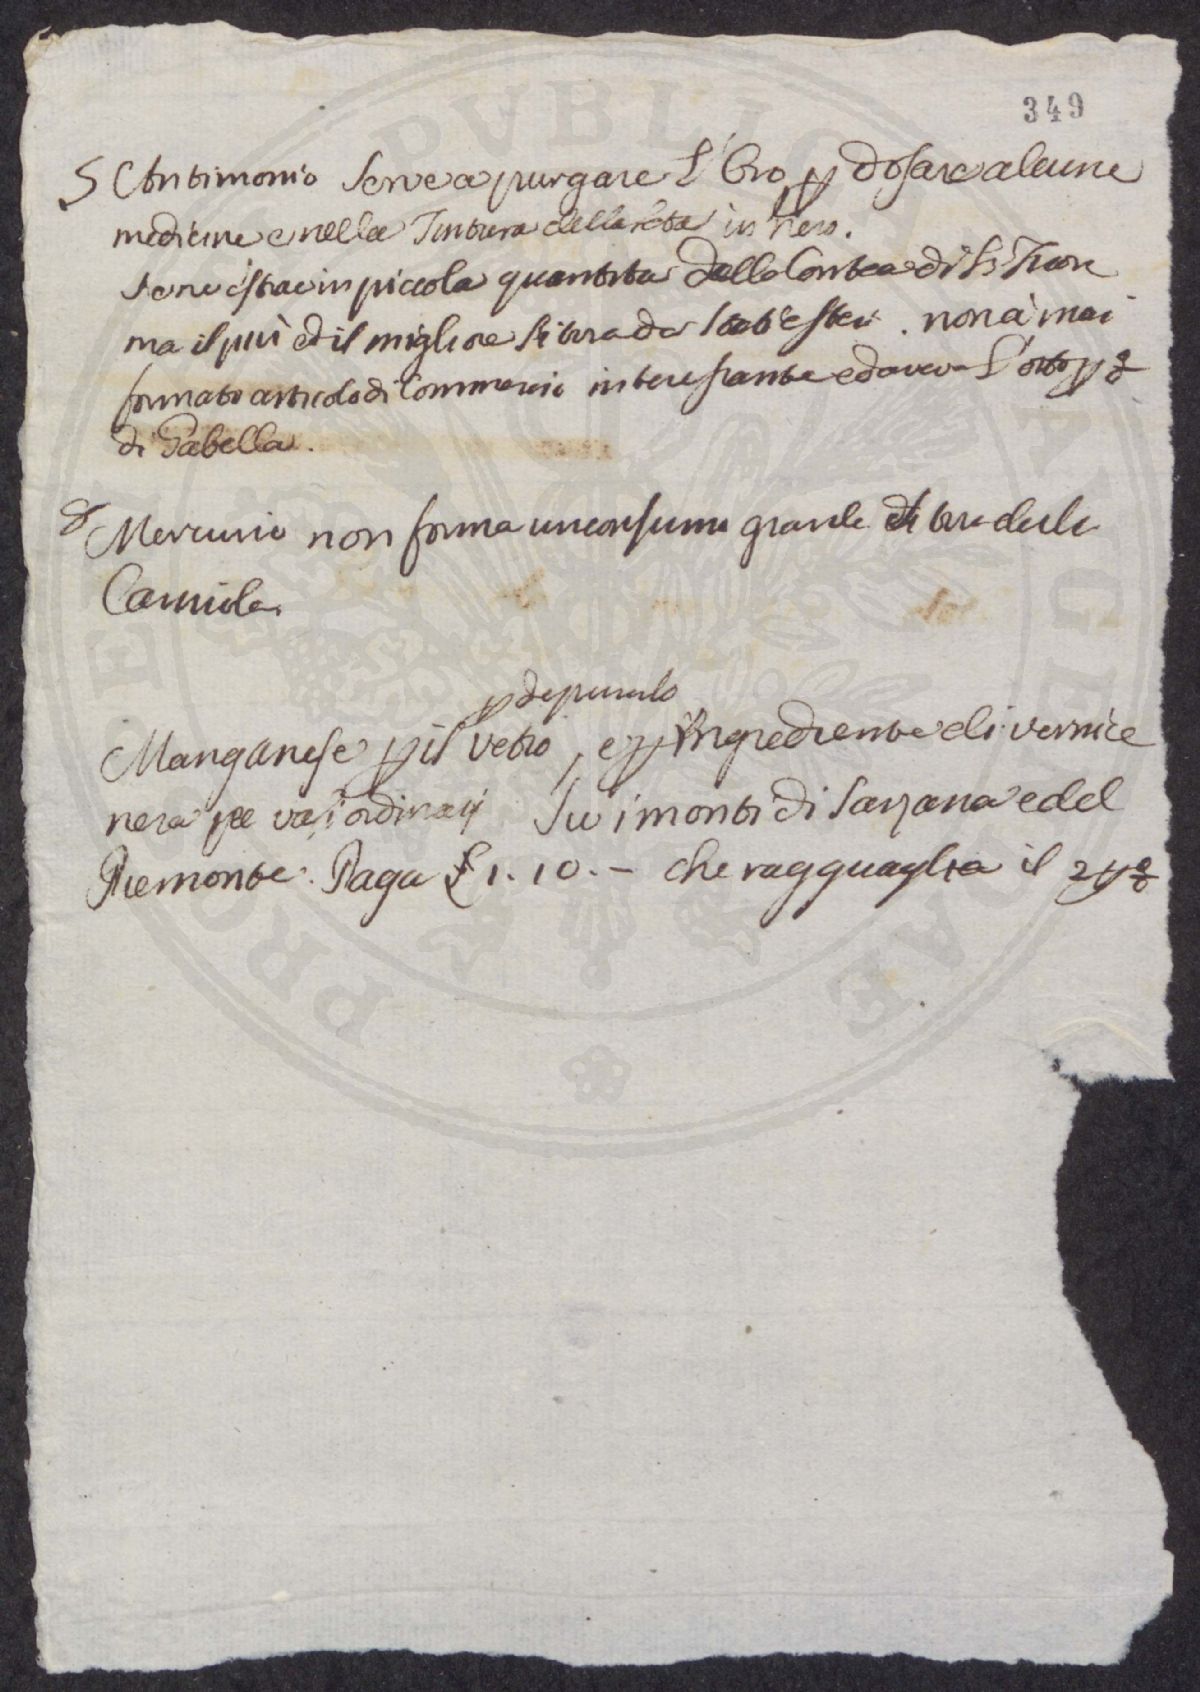 349
S Antimonio Serve a purgare L'Oro, p dosare alcune
medicine e nella Tintura della seta in Nero.
Se ne estrae in piccola quantita dalla Contea di
ma il più ed il migliore si tira da Stati esteri. non à mai
formato articolo di Commercio interessante e dava L'otto p %
di Gabella.
Mercurio non forma un consumo grande si tira dala
Carniola
p depurarlo
Manganese p il vetro, e p Ingrediente di vernice
nera pe vasi ordinarij Su i monti di Sarzana e del
Piemonte. Paga £ 1. 10. – che ragguaglia il 2 p %